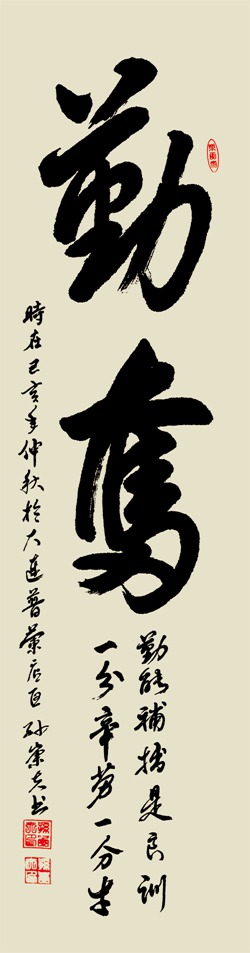 勤奮
勤能補拙是良訓
一分辛勞一分才
時在己亥年仲秋於大連普蘭店區孫崇夫书